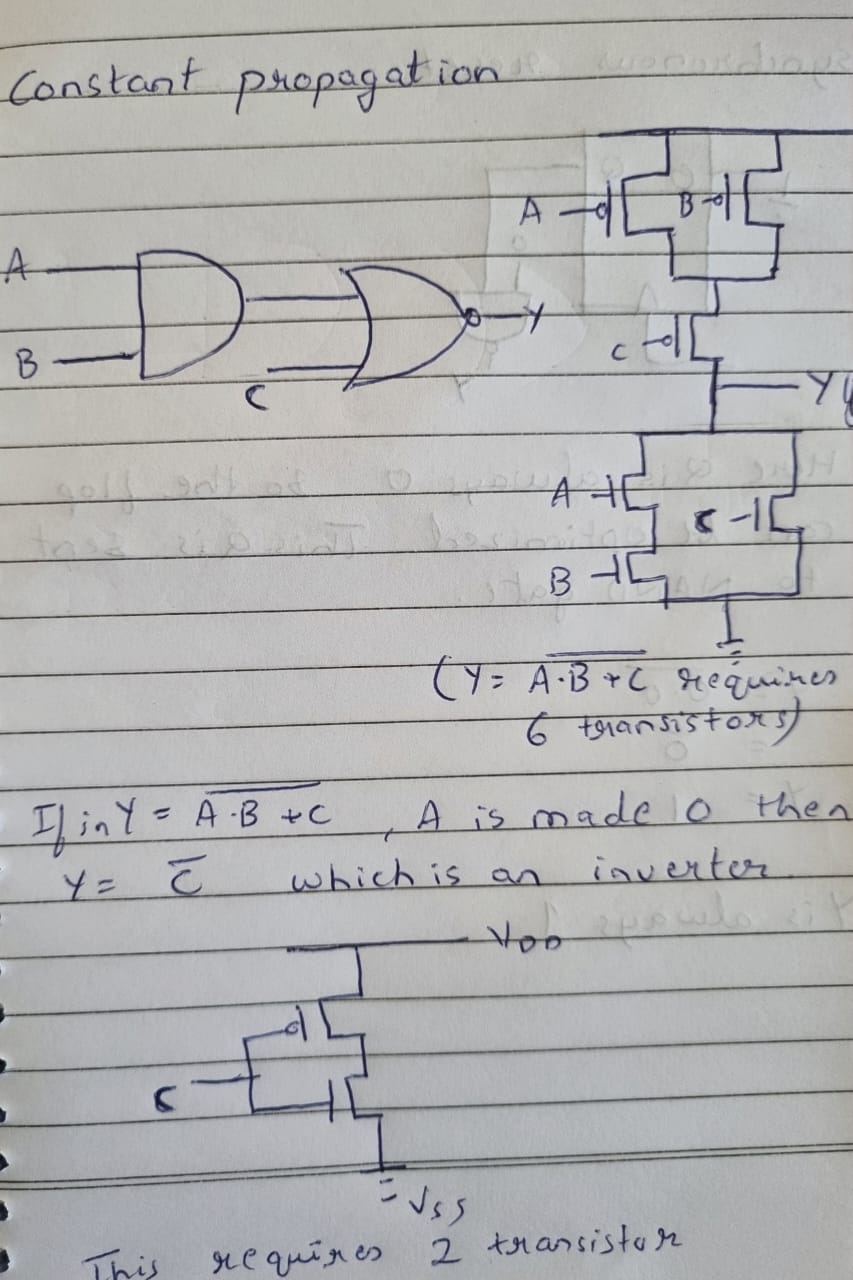 Constant propagation
A
B
C
Y
A
B
C
Y
A
C
B
(Y = \overline{A·B+C} requires
6 transistors)
If in Y = \overline{A·B+C} , A is made 0 then
Y = \overline{C} which is an inverter
VDD
C
VSS
This requires 2 transistor